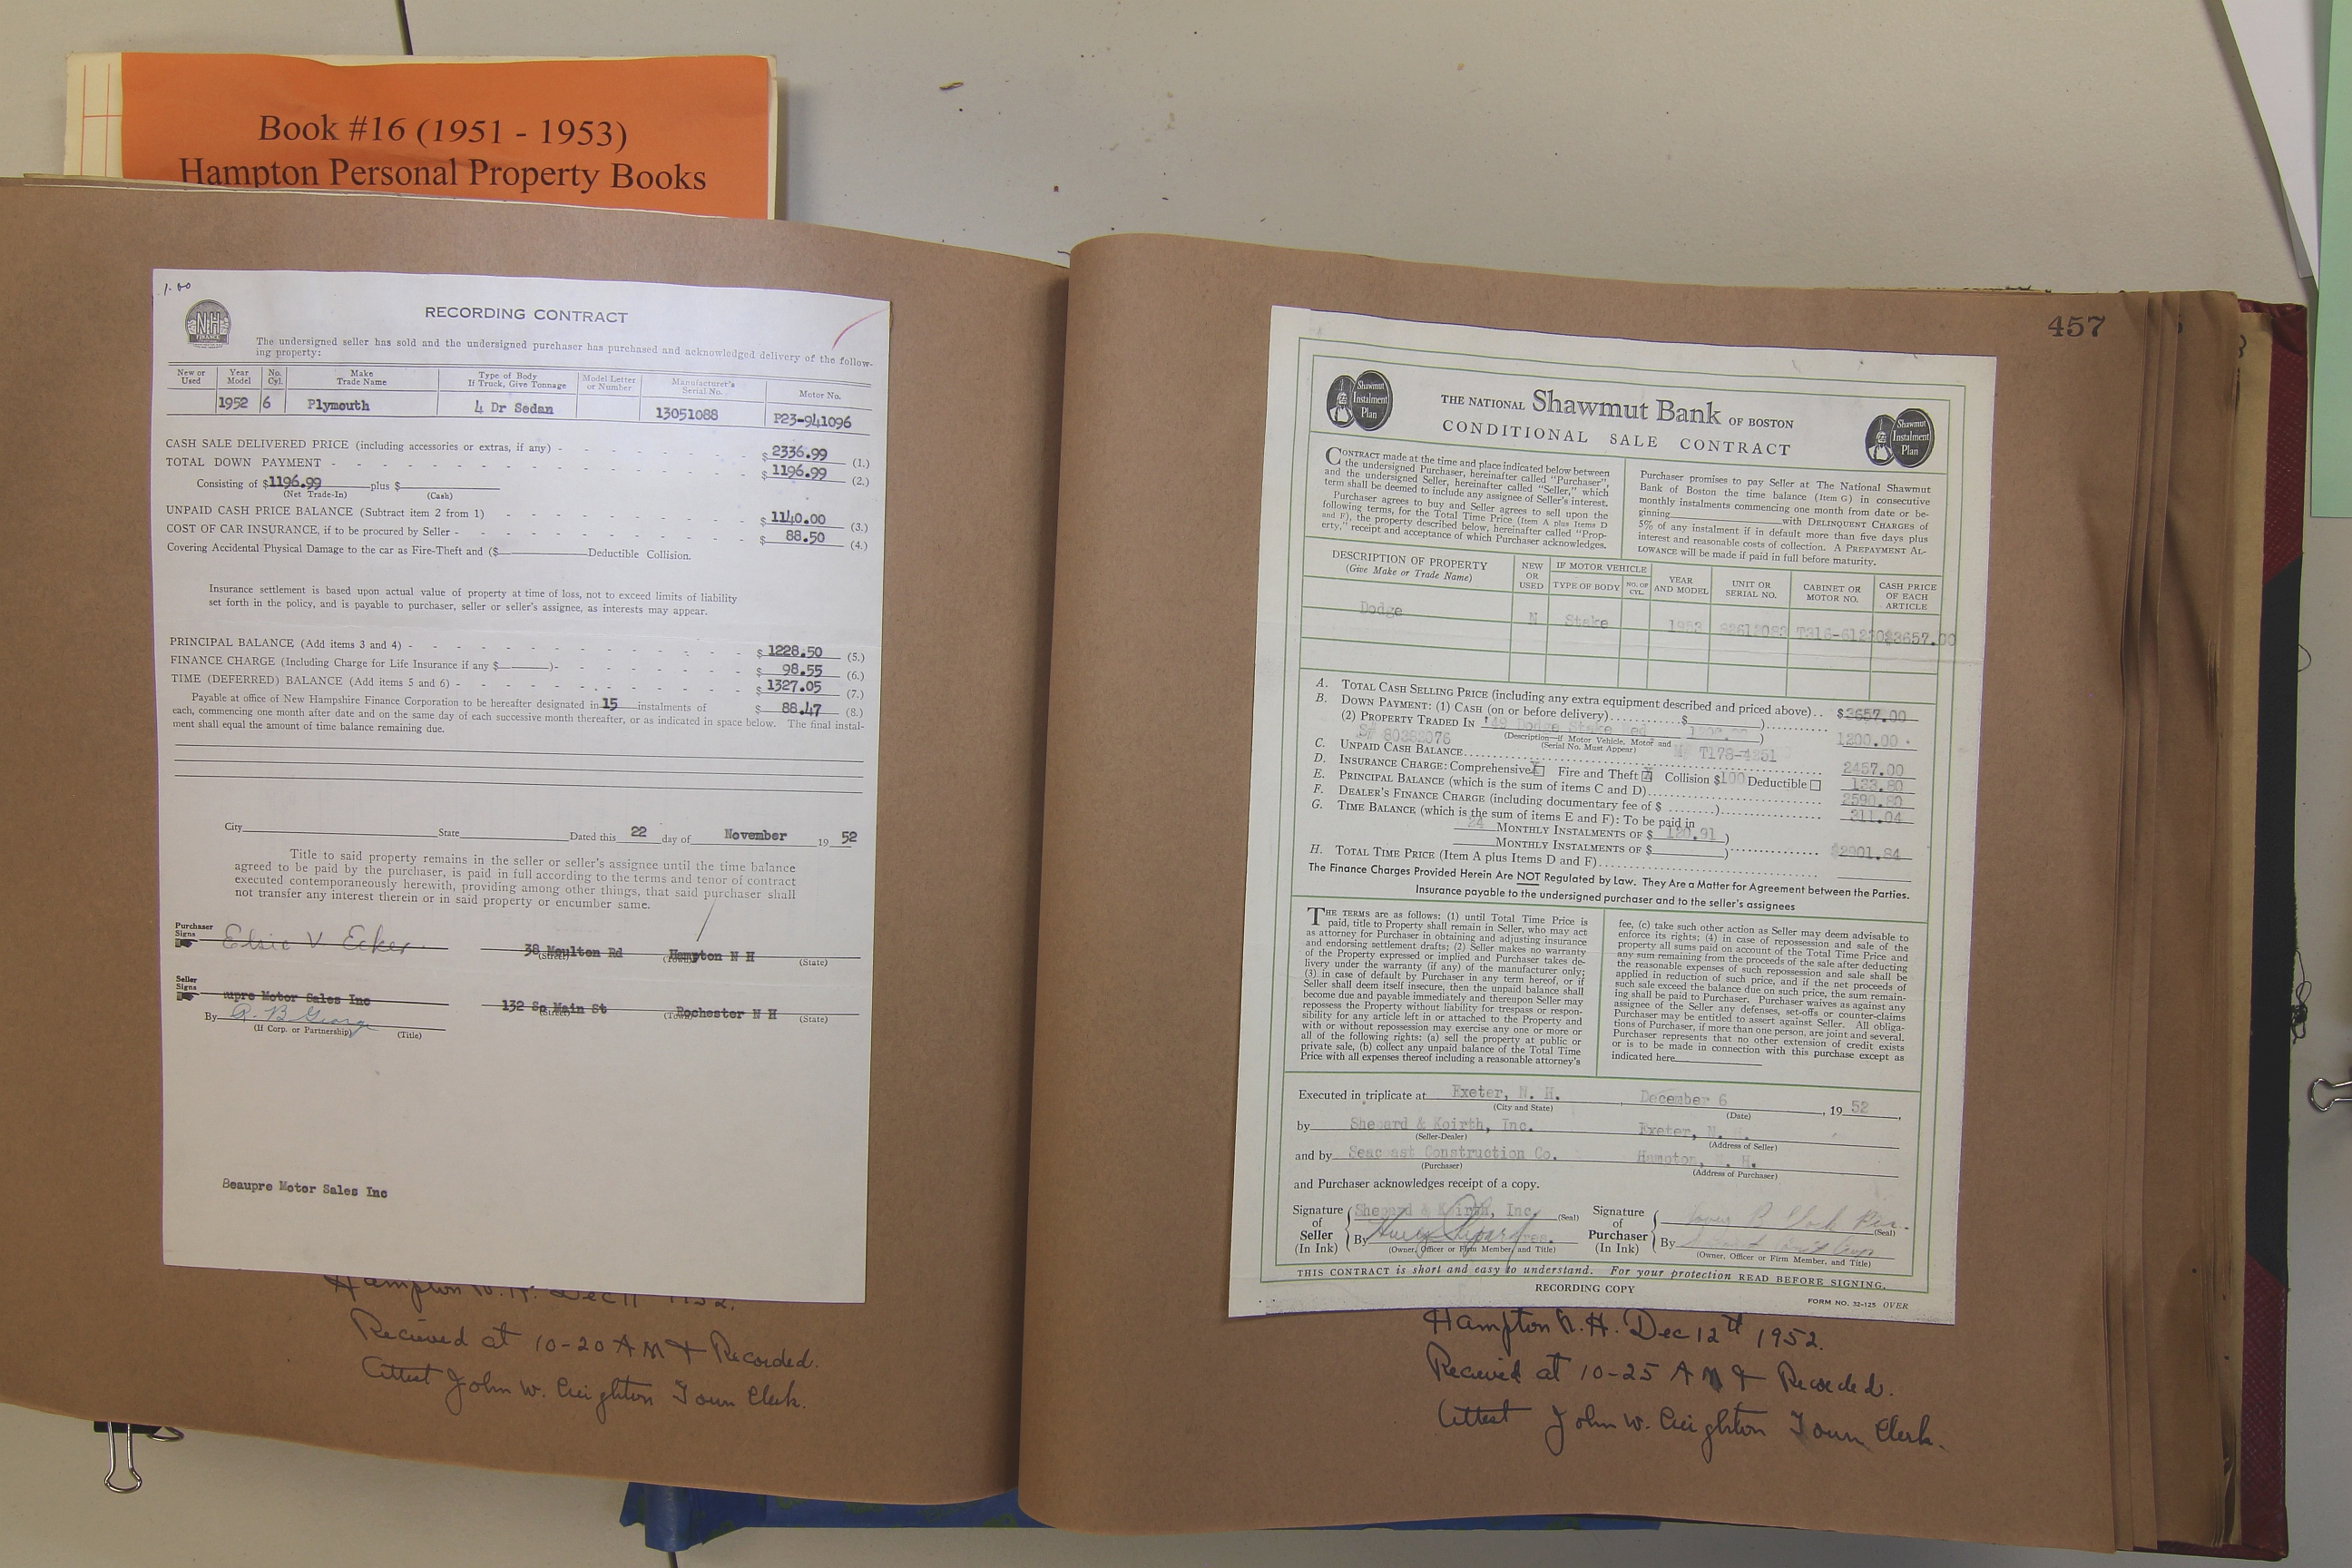 Book #16 (1951 - 1953)
Hampton Personal Property Books
1.00
NH
FINANCE
RECORDING CONTRACT
The undersigned seller has sold and the undersigned purchaser has purchased and acknowledged delivery of the follow-
ing property:
New or Used Year Model No. Cyl. Make Trade Name Type of Body If Truck, Give Tonnage Model Letter or Number Manufacturer's Serial No. Motor No.
1952 6 Plymouth 4 Dr Sedan 13051088 P23-941096
CASH SALE DELIVERED PRICE (including accessories or extras, if any) - $ 2336.99 (1.)
TOTAL DOWN PAYMENT - $ 1196.99 (2.)
Consisting of $1196.99 plus $
(Net Trade-In) (Cash)
UNPAID CASH PRICE BALANCE (Subtract item 2 from 1) - $ 1140.00 (3.)
COST OF CAR INSURANCE, if to be procured by Seller - $ 88.50 (4.)
Covering Accidental Physical Damage to the car as Fire-Theft and ($ Deductible Collision.
Insurance settlement is based upon actual value of property at time of loss, not to exceed limits of liability
set forth in the policy, and is payable to purchaser, seller or seller's assignee, as interests may appear.
PRINCIPAL BALANCE (Add items 3 and 4) - $ 1228.50 (5.)
FINANCE CHARGE (Including Charge for Life Insurance if any $ ) - $ 98.55 (6.)
TIME (DEFERRED) BALANCE (Add items 5 and 6) - $ 1327.05 (7.)
Payable at office of New Hampshire Finance Corporation to be hereafter designated in 15 instalments of $ 88.47 (8.)
each, commencing one month after date and on the same day of each successive month thereafter, or as indicated in space below. The final instal-
ment shall equal the amount of time balance remaining due.
City State Dated this 22 day of November 19 52
Title to said property remains in the seller or seller's assignee until the time balance
agreed to be paid by the purchaser, is paid in full according to the terms and tenor of contract
executed contemporaneously herewith, providing among other things, that said purchaser shall
not transfer any interest therein or in said property or encumber same.
Purchaser Signs Elsie V. Ecker 38 Moulton Rd Hampton N H
(Street) (Town) (State)
Seller Signs upre Motor Sales Inc 132 So Main St Rochester N H
(Street) (Town) (State)
By R. B George
(If Corp. or Partnership) (Title)
Beaupre Motor Sales Inc
Hampton N. H. Dec 11 1952.
Recieved at 10-20 AM & Recorded.
Attest John W. Creighton Town Clerk.
457
Shawmut Instalment Plan
THE NATIONAL Shawmut Bank OF BOSTON
CONDITIONAL SALE CONTRACT
Shawmut Instalment Plan
CONTRACT made at the time and place indicated below between
the undersigned Purchaser, hereinafter called "Purchaser",
and the undersigned Seller, hereinafter called "Seller," which
term shall be deemed to include any assignee of Seller's interest.
Purchaser agrees to buy and Seller agrees to sell upon the
following terms, for the Total Time Price (Item A plus Items D
and F), the property described below, hereinafter called "Prop-
erty," receipt and acceptance of which Purchaser acknowledges.
Purchaser promises to pay Seller at The National Shawmut
Bank of Boston the time balance (Item G) in consecutive
monthly instalments commencing one month from date or be-
ginning with DELINQUENT CHARGES of
5% of any instalment if in default more than five days plus
interest and reasonable costs of collection. A PREPAYMENT AL-
LOWANCE will be made if paid in full before maturity.
DESCRIPTION OF PROPERTY (Give Make or Trade Name) NEW OR USED IF MOTOR VEHICLE TYPE OF BODY NO. OF CYL. YEAR AND MODEL UNIT OR SERIAL NO. CABINET OR MOTOR NO. CASH PRICE OF EACH ARTICLE
Dodge N Stake 1953 82612083 $3657.00
A. TOTAL CASH SELLING PRICE (including any extra equipment described and priced above).. $3657.00
B. DOWN PAYMENT: (1) CASH (on or before delivery)...........$ )
(2) PROPERTY TRADED IN '49 Dodge Stake 1200.00 ) 1200.00
S# 80382076 (Description—if Motor Vehicle, Motor and Serial No. Must Appear) M# T178-4251
C. UNPAID CASH BALANCE.. 2457.00
D. INSURANCE CHARGE: Comprehensive Fire and Theft Collision $100 Deductible 133.80
E. PRINCIPAL BALANCE (which is the sum of items C and D).. 2590.80
F. DEALER'S FINANCE CHARGE (including documentary fee of $ ........).. 311.04
G. TIME BALANCE (which is the sum of items E and F): To be paid in
24 MONTHLY INSTALMENTS OF $ 120.91 )
MONTHLY INSTALMENTS OF $ ).. $2901.84
H. TOTAL TIME PRICE (Item A plus Items D and F)..
The Finance Charges Provided Herein Are NOT Regulated by Law. They Are a Matter for Agreement between the Parties.
Insurance payable to the undersigned purchaser and to the seller's assignees
THE TERMS are as follows: (1) until Total Time Price is
paid, title to Property shall remain in Seller, who may act
as attorney for Purchaser in obtaining and adjusting insurance
and endorsing settlement drafts; (2) Seller makes no warranty
of the Property expressed or implied and Purchaser takes de-
livery under the warranty (if any) of the manufacturer only;
(3) in case of default by Purchaser in any term hereof, or if
Seller shall deem itself insecure, then the unpaid balance shall
become due and payable immediately and thereupon Seller may
repossess the Property without liability for trespass or respon-
sibility for any article left in or attached to the Property and
with or without repossession may exercise any one or more or
all of the following rights: (a) sell the property at public or
private sale, (b) collect any unpaid balance of the Total Time
Price with all expenses thereof including a reasonable attorney's
fee, (c) take such other action as Seller may deem advisable to
enforce its rights; (4) in case of repossession and sale of the
property all sums paid on account of the Total Time Price and
any sum remaining from the proceeds of the sale after deducting
the reasonable expenses of such repossession and sale shall be
applied in reduction of such price, and if the net proceeds of
such sale exceed the balance due on such price, the sum remain-
ing shall be paid to Purchaser. Purchaser waives as against any
assignee of the Seller any defenses, set-offs or counter-claims
Purchaser may be entitled to assert against Seller. All obliga-
tions of Purchaser, if more than one person, are joint and several.
Purchaser represents that no other extension of credit exists
or is to be made in connection with this purchase except as
indicated here
Executed in triplicate at Exeter, N. H. December 6, 19 52,
(City and State) (Date)
by Shepard & Koirth, Inc. Exeter, N. H.
(Seller-Dealer) (Address of Seller)
and by Seacoast Construction Co. Hampton, N. H.
(Purchaser) (Address of Purchaser)
and Purchaser acknowledges receipt of a copy.
Signature of Seller (In Ink) Shepard & Koirth, Inc. (Seal)
By Pres.
(Owner, Officer or Firm Member, and Title)
Signature of Purchaser (In Ink) (Seal)
By
(Owner, Officer or Firm Member, and Title)
THIS CONTRACT is short and easy to understand. For your protection READ BEFORE SIGNING.
RECORDING COPY
FORM NO. 32-125 OVER
Hampton N. H. Dec 12th 1952.
Recieved at 10-25 AM & Recorded.
Attest John W. Creighton Town Clerk.